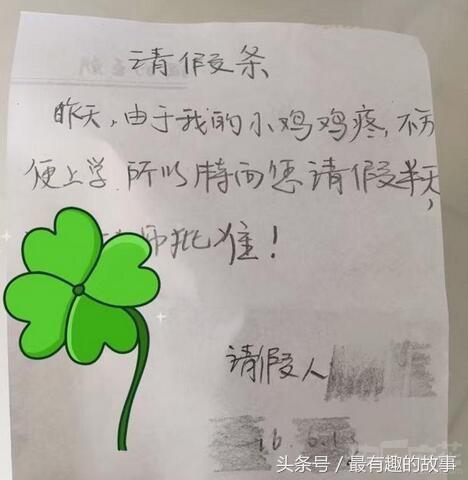 请假条
昨天,由于我的小鸡鸡疼,不方
便上学.所以特向您请假半天,
师批准!
请假人
16.6.13
头条号/最有趣的故事